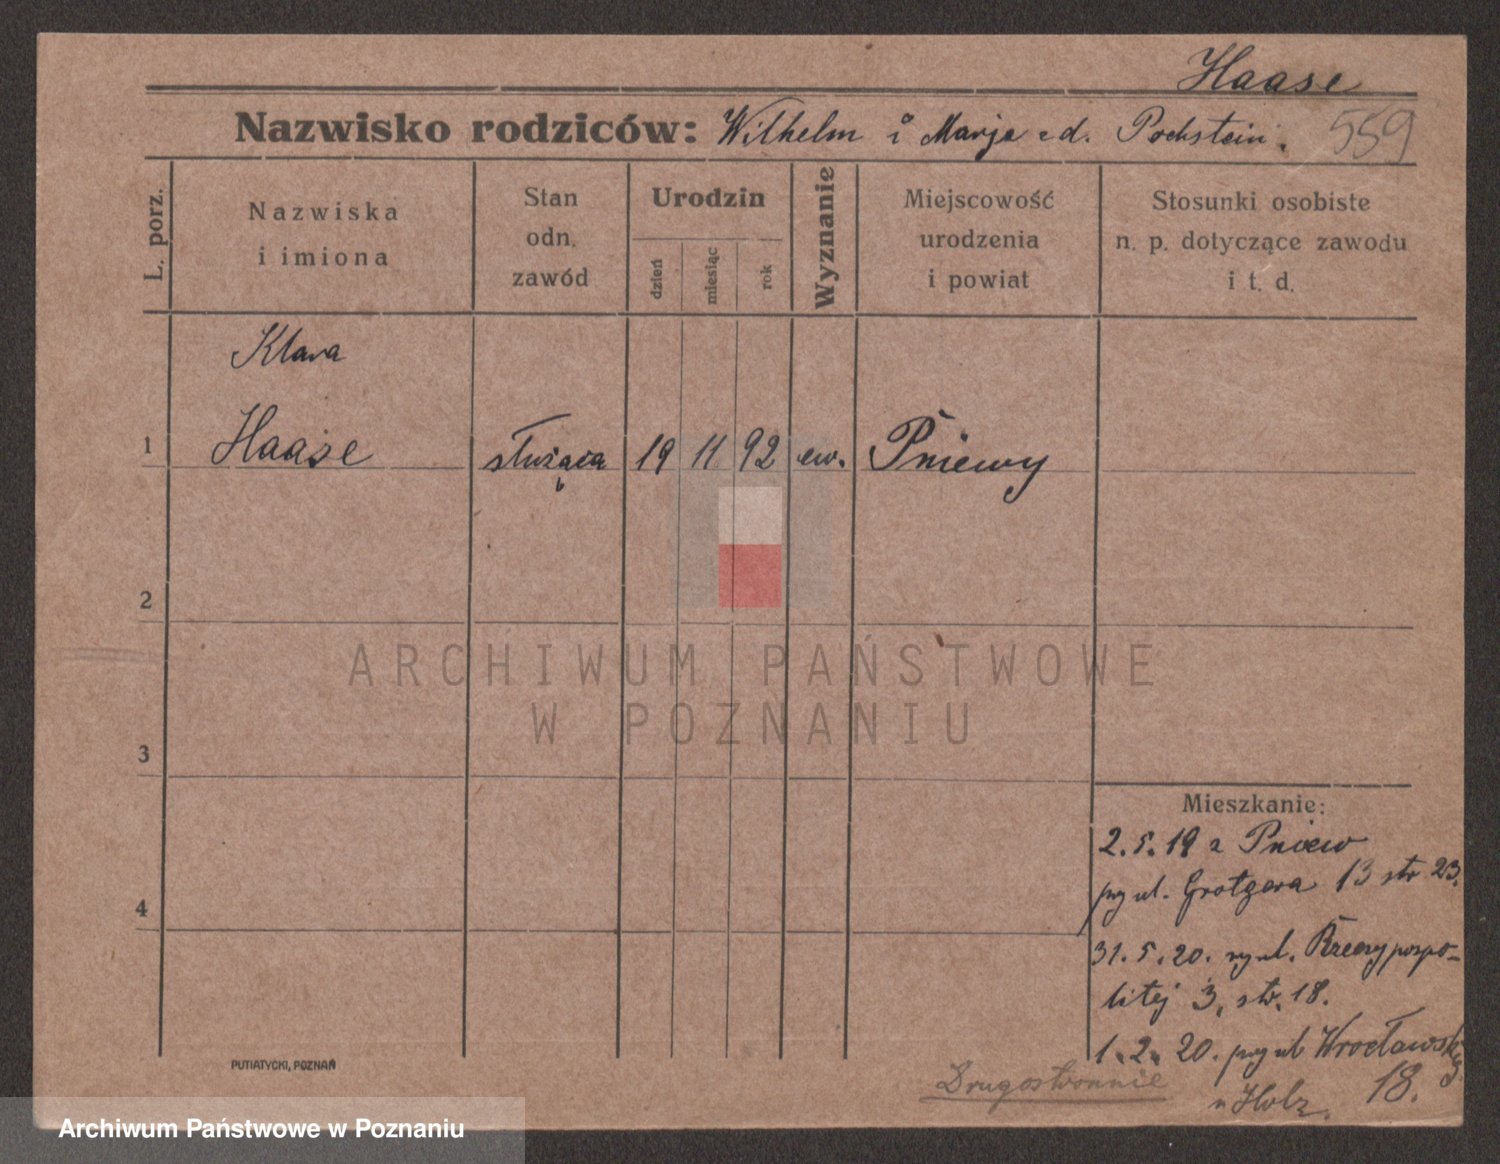 Haase
Nazwisko rodziców: Wilhelm i Marja z d. Pockstein. 559
L. porz.
Nazwiska i imiona
Stan odn. zawód
Urodzin
dzień
miesiąc
rok
Wyznanie
Miejscowość urodzenia i powiat
Stosunki osobiste n. p. dotyczące zawodu i t. d.
Klara
1 Haase służąca 19 11 92 ew. Pniewy
2
ARCHIWUM PAŃSTWOWE
W POZNANIU
3
Mieszkanie:
2.5.19 z Pniew
przy ul. Grotgera 13 str 23.
4
31.5.20. ul. Rzeczypospo-
litej 3, str. 18.
1.2.20. przy ul Wrocławskiej
18.
u Holz.
Drugostronnie
PUTIATYCKI, POZNAŃ
Archiwum Państwowe w Poznaniu